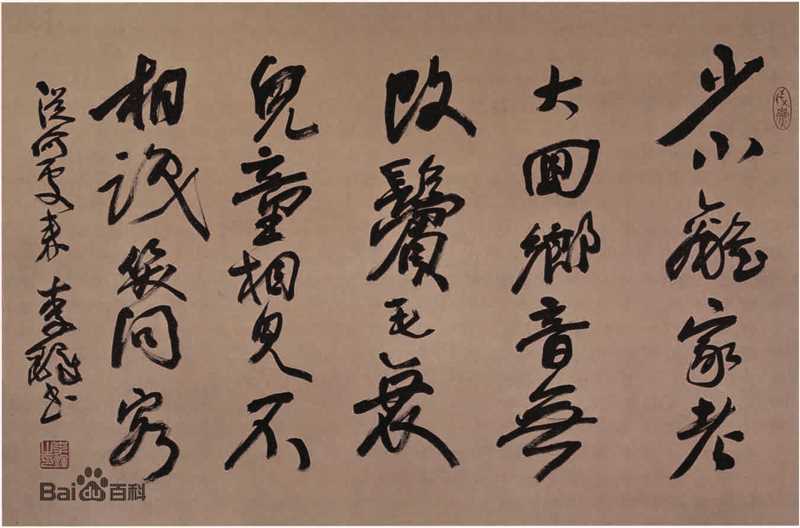 少小離家老
大回鄉音無
改鬢毛衰
兒童相見不
相識笑問客
從何處來 李鐸書
Bai百科